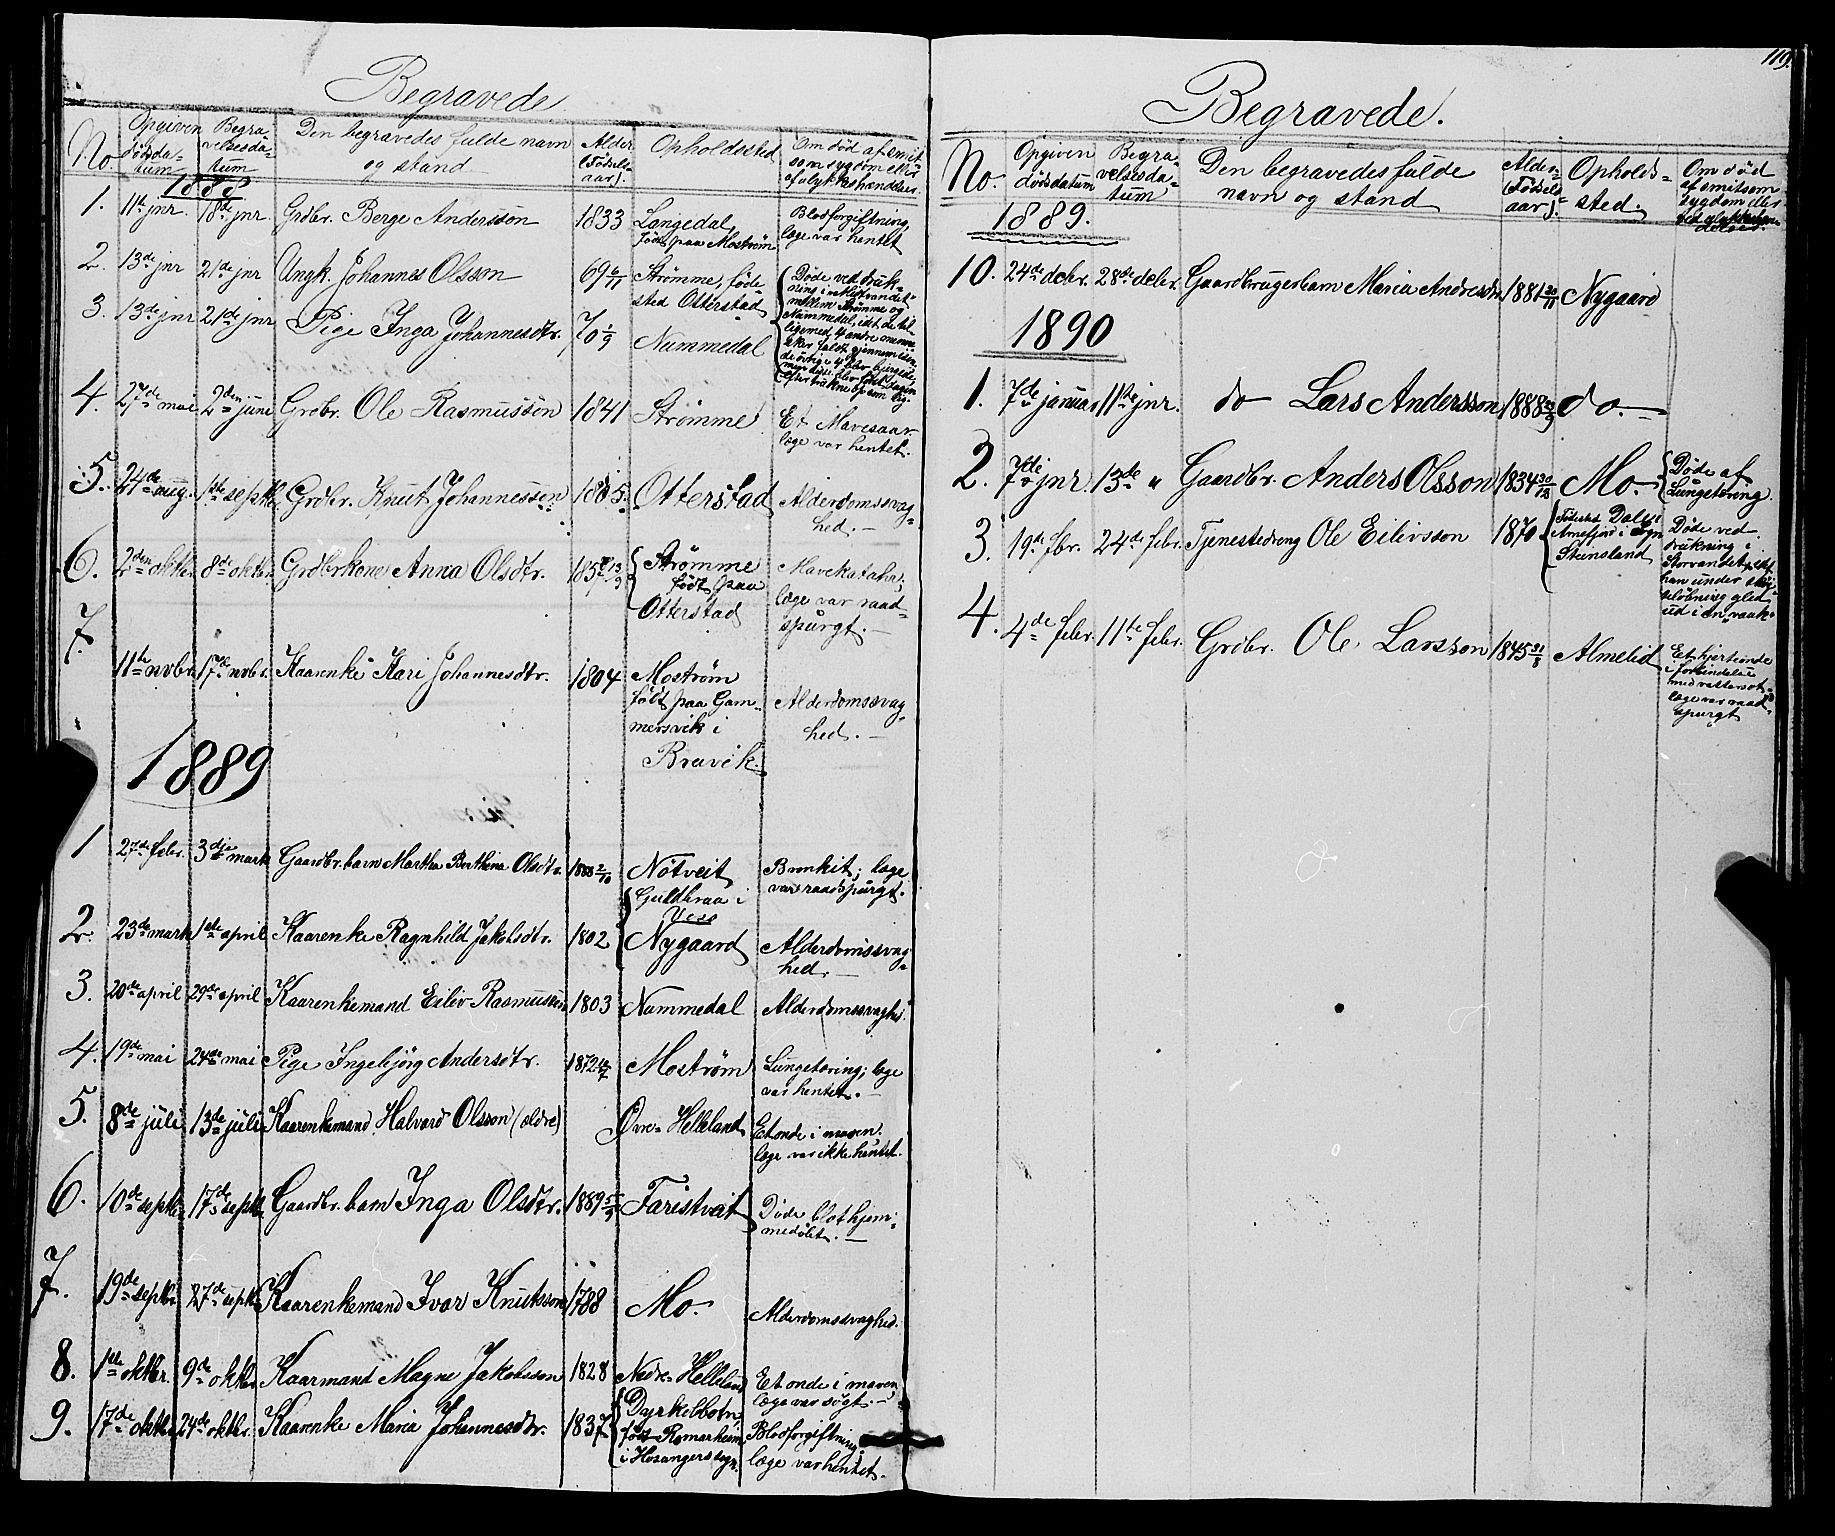 Begravede
No
Opgiven dødsda-tum
Begra-velsesda-tum
Den begravedes fulde navn og stand
Alder (Fødsels-aar).
Opholdssted
Om død af smit-som sygdom eller af ulykkeshændelser.
1888
1. 11te jnr. 18de jnr. Grdbr. Berge Anderssøn 1833 Langedal, født paa Mostrøm Blodforgiftning, læge var hentet
2. 13de jnr 21de jnr Ungk. Johannes Olsson 69 Strømme, føde-sted Otterstad
3. 13de jnr 21de jnr Pige Inga Johannesdtr. 70 1/9 Nummedal
Døde ved druk-ning mellem Strømme og Nummedal,
4. 27de mai 2den juni Grdbr. Ole Rasmussøn 1841 Strømme Et Mavesaar. læge var hentet.
5. 24de aug. 1ste septbr. Grdbr. Knut Johannessen 1805 Otterstad Alderdomssvag-hed.
6. 2den oktbr. 8de oktbr. Grdbrkone Anna Olsdtr. Strømme født paa Otterstad Mavekatarh; læge var raad-spurgt.
7. 11te novbr. 17de novbr. Kaarenke Kari Johannesdtr. 1804 Mostrøm født paa Gam-mersvik i Bruvik. Alderdomssvag-hed.
1889
1 27de febr. 3dje marts Gaardbr.barn Martha Berthina Olsdtr. 1888 2/10 Nötveit Bronkit; læge var raadspurgt.
2. 23de marts 1ste april Kaarenke Ragnhild Jakobsdtr. 1802 Guldbraa i Voss Nygaard Alderdomssvag-hed.
3. 20de april 29de april Kaarenkemand Eiliv Rasmussøn 1803 Nummedal Alderdomssvaghd.
4. 19de mai 24de mai Pige Ingebjørg Andersdtr. 1872 Mostrøm Lungetæring; læge var hentet.
5. 8de juli 13de juli Kaarenkemand Halvard Olsson (ældre) Øvre-Helleland Et onde i maven. læge var ikke hentet.
6. 10de septbr. 17de septbr. Gaardbr.barn Inga Olsdtr. 1889 5/9 Faristveit Døde blot hjem-medøbt.
7. 19de septbr. 27de septbr. Kaarenkemand Ivar Knutsson 1788 Mo. Alderdomssvaghed.
8. 1ste oktbr. 9de oktbr. Kaarmand Magne Jakobsson 1828 Nedre-Helleland Et onde i maven, læge var søgt.
9. 17de oktbr. 24de oktbr. Kaarenke Maria Johannesdtr. 1837 Dyrkolbotn, født Romarheim i Hosangers sogn. Blodforgiftning læge var hentet.
119.
Begravede.
No.
Opgiven dødsdatum
Begra-velsesda-tum
Den begravedes fulde navn og stand
Alder (Fødsels-aar).
Opholds-sted.
Om død af smitsom sygdom eller ved ulykkeshæn-delser.
1889.
10. 24de debr. 28de debr. Gaardbrugerbarn Maria Andersdtr. 1881 20/11 Nygaard
1890
1. 7de januar 11te jnr. do Lars Andersson 1888 do.
2. 7de jnr. 13de " Gaardbr. Anders Olsson 1834 Mo. Døde af Lungetæring.
3. 19de fbr. 24de febr. Tjenestedreng Ole Eilivsson 1870 Fødested Dale, Arnefjord i Sogn Stensland Døde ved drukning i Storvandet, idet han under skøi-teløbning gled ud i en vaak.
4. 4de febr. 11te febr. Grdbr. Ole Larsson 1845 Almelid Et hjerteonde i forbindelse med vattersot, læge var raad-spurgt